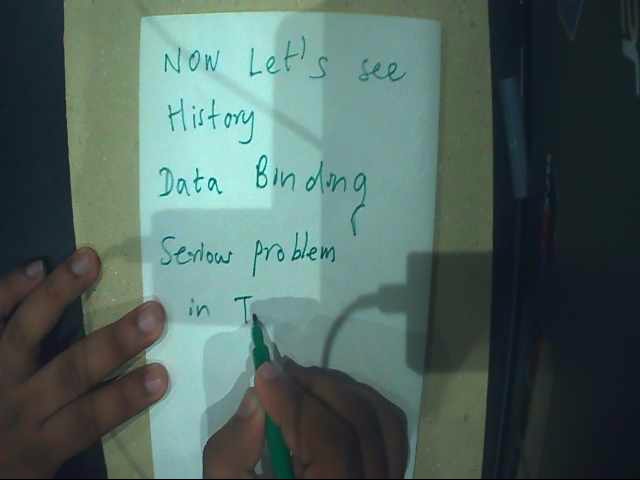 Now Let's see
History
Data Binding
Serious problem
in T